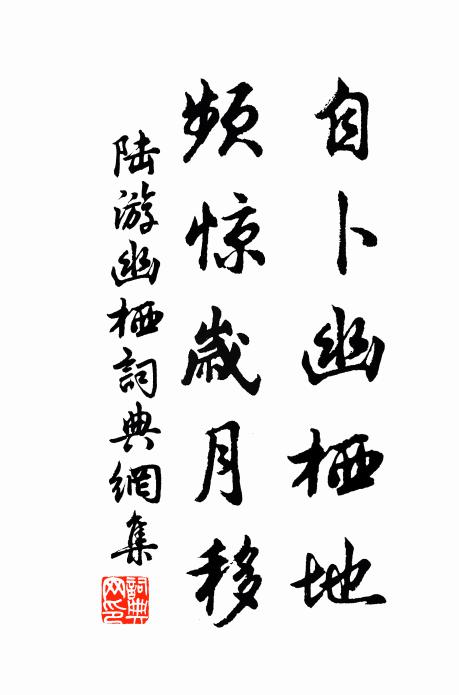 自卜幽栖地
频惊歳月移
陆游幽栖詞典網集
詞典網印